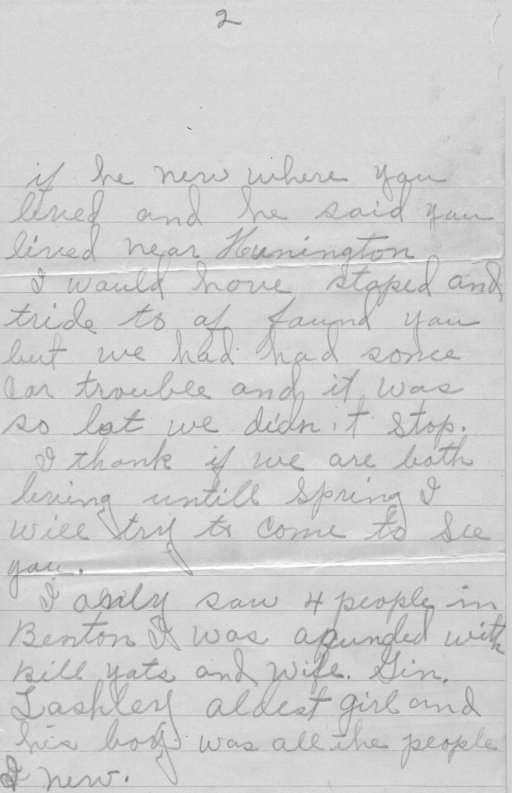 2
if he new where you
lived and he said you
lived near Hunington
I would have staped and
tride to of found you
but we had had some
car trouble and it was
so lat we didn't stop.
I thank if we are both
living untill Spring I
will try to come to see
you.
I only saw 4 people in
Benton I was with
Bill yats and wife. Gin.
Lashley aldest girl and
his boy was all the people
I new.